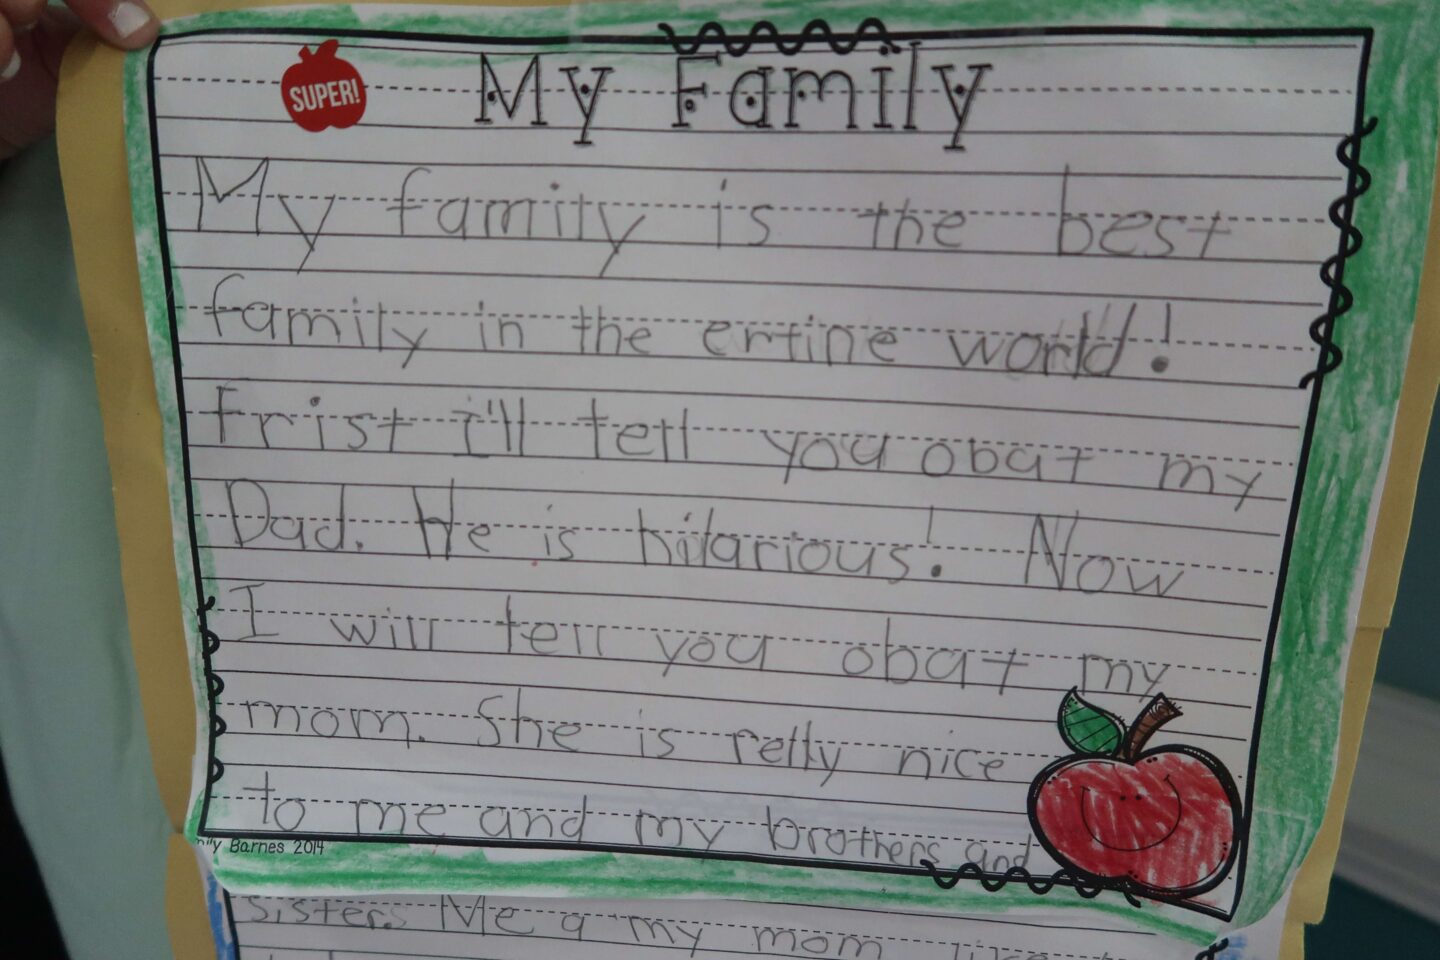 SUPER!
My Family
My family is the best
family in the ertine world!
Frist I'll tell you obat my
Dad. He is hilarious! Now
I will tell you obat my
mom. She is relly nice
to me and my brothers and
Barnes 2014
sisters. Me a my mom